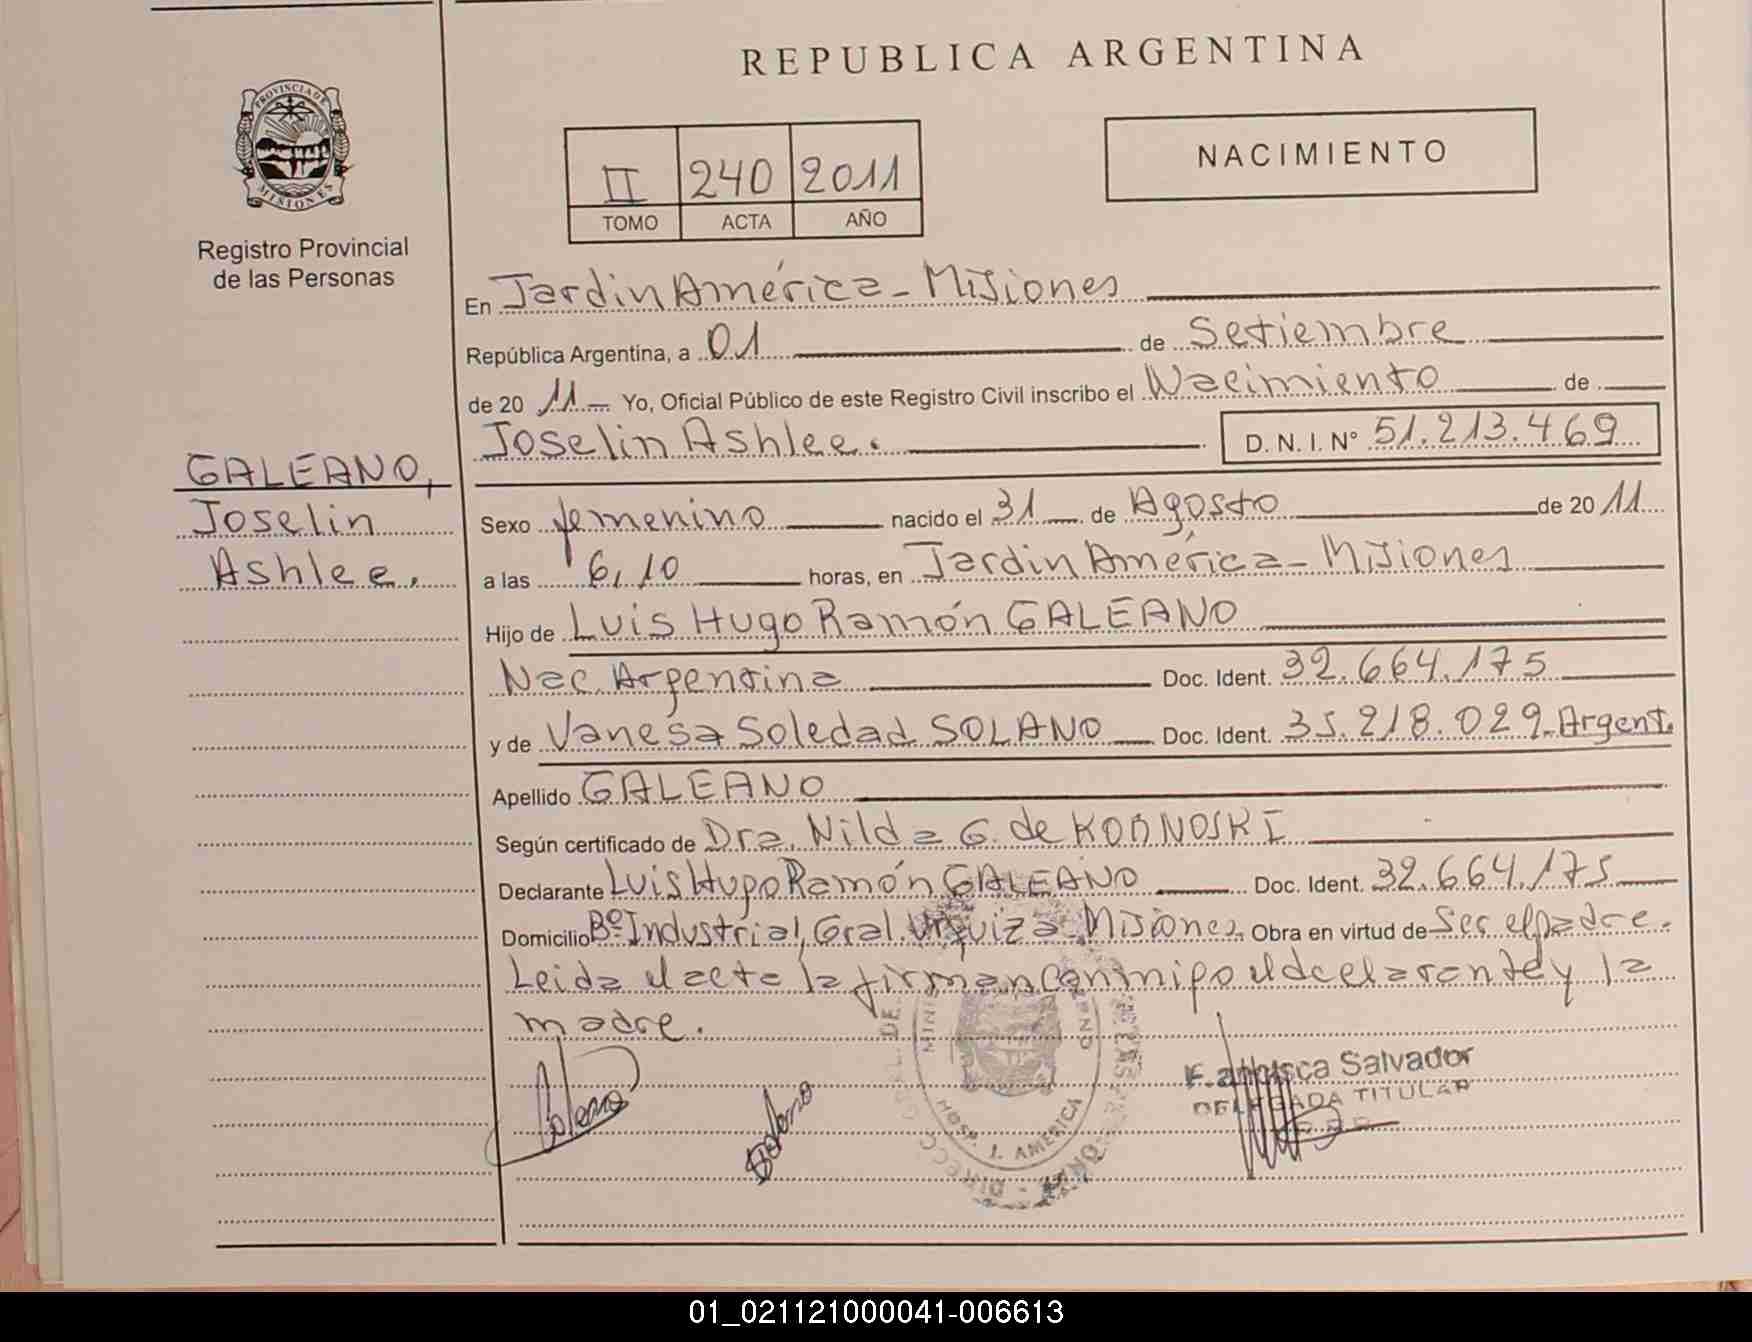 REPUBLICA ARGENTINA
PROVINCIA DE
MISIONES
Registro Provincial
de las Personas
II 240 2011
TOMO ACTA AÑO
NACIMIENTO
En Jardin América - Misiones
República Argentina, a 01 de Setiembre
de 20 11 Yo, Oficial Público de este Registro Civil inscribo el Nacimiento de
Joselin Ashlee. D. N. I. Nº 51.213.469
GALEANO,
Joselin
Ashlee.
Sexo femenino nacido el 31 de Agosto de 20 11
a las 6,10 horas, en Jardin América - Misiones
Hijo de Luis Hugo Ramón GALEANO
Nac. Argentina Doc. Ident. 32.664.175
y de Vanesa Soledad SOLANO Doc. Ident. 35.218.029 - Argent.
Apellido GALEANO
Según certificado de Dra. Nilda G. de
Declarante Luis Hugo Ramón GALEANO Doc. Ident. 32.664.175
Domicilio Bº Industrial, Gral. Urquiza - Misiones. Obra en virtud de Ser el padre.
Leida el acta la firman conmigo el declarante y la
madre.
Galeano
Solano
HOSP. J. AMERICA
Francisca Salvador
DELEGADA TITULAR
01_021121000041-006613